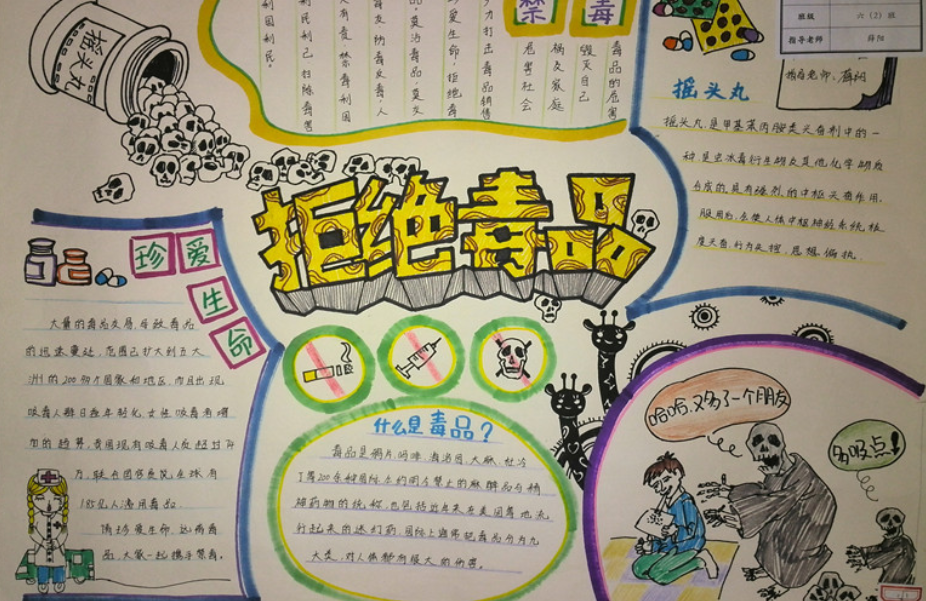 摇头丸
禁毒
毒品的危害
毁灭自己
祸及家庭
危害社会
力打击毒品销售
爱生命,拒绝毒
品,莫沾毒品,莫交
人有责 禁毒利国
利民利己 扫除毒害
利国利民。
班级 六(2)班
指导老师
摇头丸
摇头丸,是甲基苯丙胺类兴奋剂中的一
种是由冰毒衍生物及其他化学物质
合成的,具有强烈的中枢兴奋作用,
服用后,会使人体中枢神经系统极
度兴奋,行为失控,思想偏执
拒绝毒品
珍爱生命
大量的毒品交易,导致毒品
的迅速蔓延,范围已扩大到五大
洲的200多个国家和地区,而且出现
吸毒人群日益年轻化,女性吸毒者增
加的趋势,我国现有吸毒人员超过79
万,联合国专员说全球有
1.85亿人滥用毒品
请珍爱生命,远离毒
品,大家一起携手禁毒。
什么是毒品?
毒品是鸦片,吗啡,海洛因,大麻,杜冷
丁等200多种国际公约明令禁止的麻醉品与精
神药物的统称,也包括近年来在美国等地流
行起来的迷幻药,国际上通常把毒品分为九
大类,对人体都有极大的伤害。
哈哈,又多了一个朋友
多吸点!